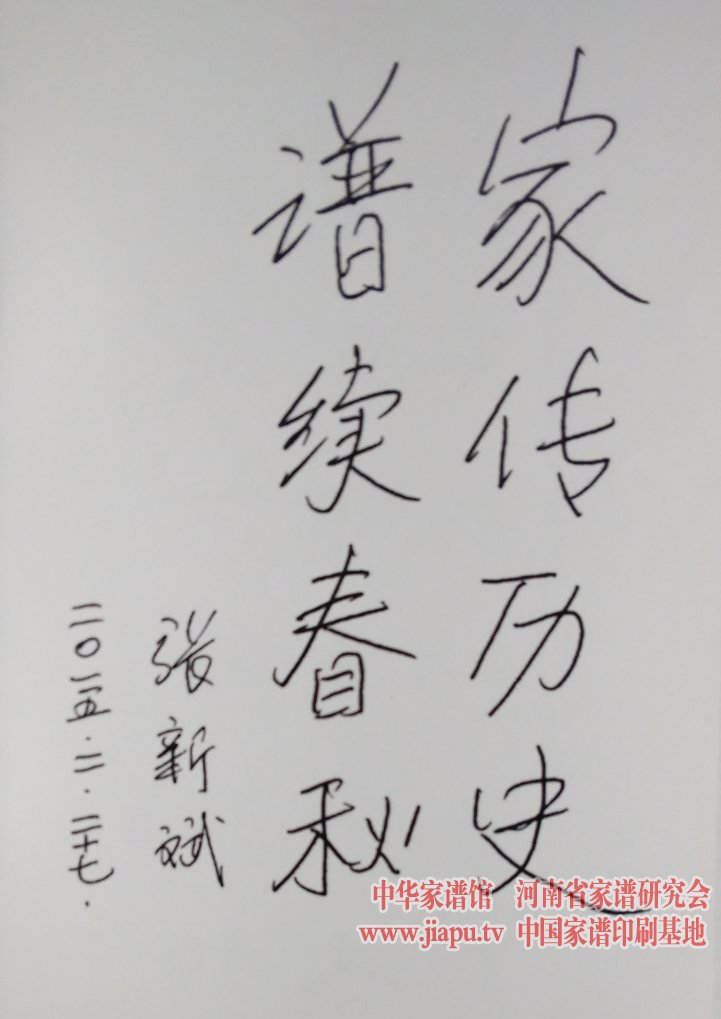 家传历史
谱续春秋
张新斌
二〇一五·二·二十七·
中华家谱馆 河南省家谱研究会
www.jiapu.tv 中国家谱印刷基地